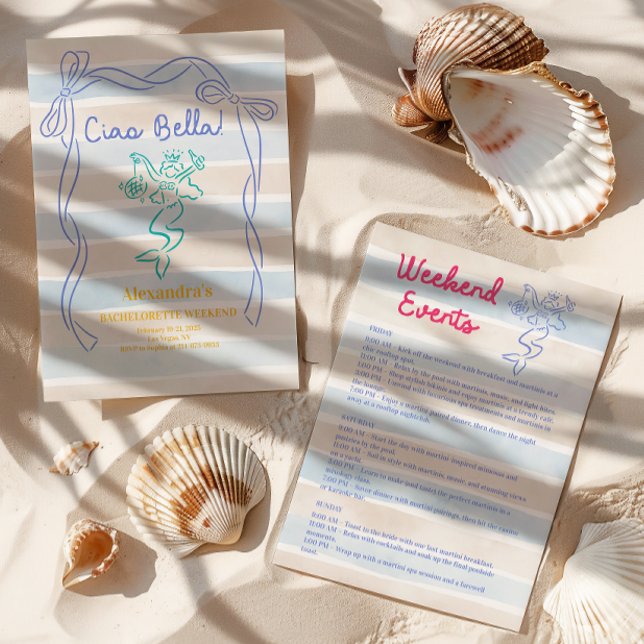 Ciao Bella!
Alexandra's
BACHELORETTE WEEKEND
February 19-21, 2025
Las Vegas, NV
RSVP to Sophia at 214-673-0933
Weekend
Events
FRIDAY
9:00 AM – Kick off the weekend with breakfast and martinis at a
chic rooftop spot.
11:00 AM – Relax by the pool with martinis, music, and light bites.
3:00 PM – Shop stylish bikinis and enjoy martinis at a trendy cafe.
5:00 PM – Unwind with luxurious spa treatments and martinis in
the lounge.
7:00 PM – Enjoy a martini-paired dinner, then dance the night
away at a rooftop nightclub.
SATURDAY
9:00 AM – Start the day with martini-inspired mimosas and
pastries by the pool.
11:00 AM – Sail in style with martinis, music, and stunning views
on a yacht.
3:00 PM – Learn to make (and taste) the perfect martinis in a
mixology class.
7:00 PM – Savor dinner with martini pairings, then hit the casino
or karaoke bar.
SUNDAY
9:00 AM – Toast to the bride with one last martini breakfast.
11:00 AM – Relax with cocktails and soak up the final poolside
moments.
1:00 PM – Wrap up with a martini spa session and a farewell
toast.